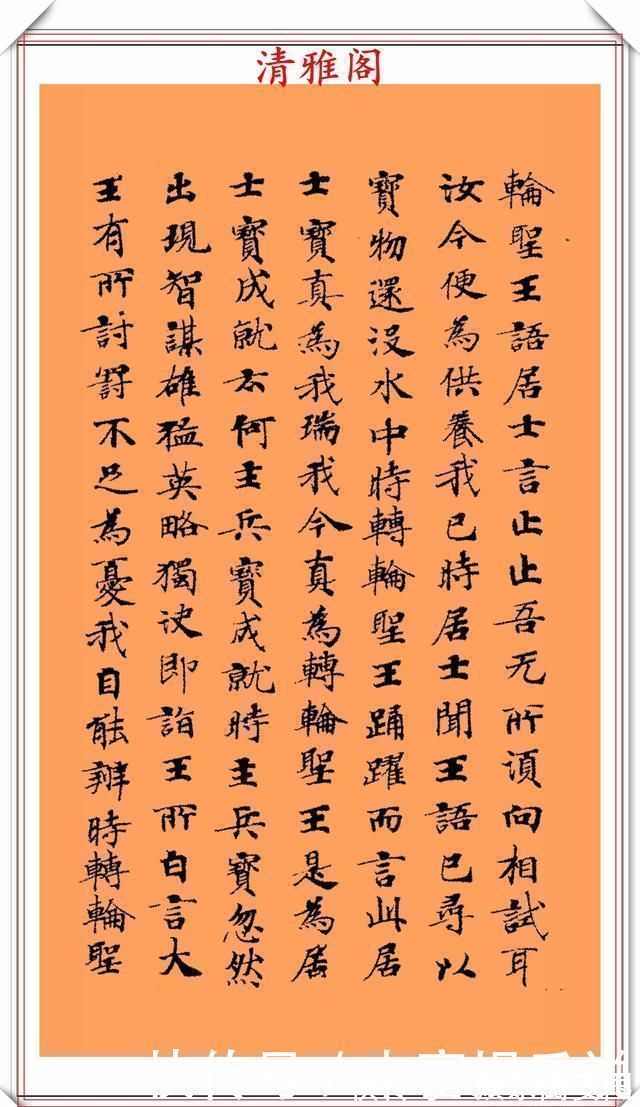 清雅阁
輪聖王語居士言止止吾无所湏向相試耳
汝今便為供養我已時居士聞王語已尋以
寶物還没水中時轉輪聖王踊躍而言此居
士寶真為我瑞我今真為轉輪聖王是為居
士寶成就云何主兵寶成就時主兵寶忽然
出現智謀雄猛英略獨决即詣王所白言大
王有所討罸不足為憂我自能辦時轉輪聖